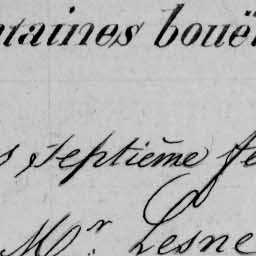 ntaines bouë
s septième fe
Mr. Lesne